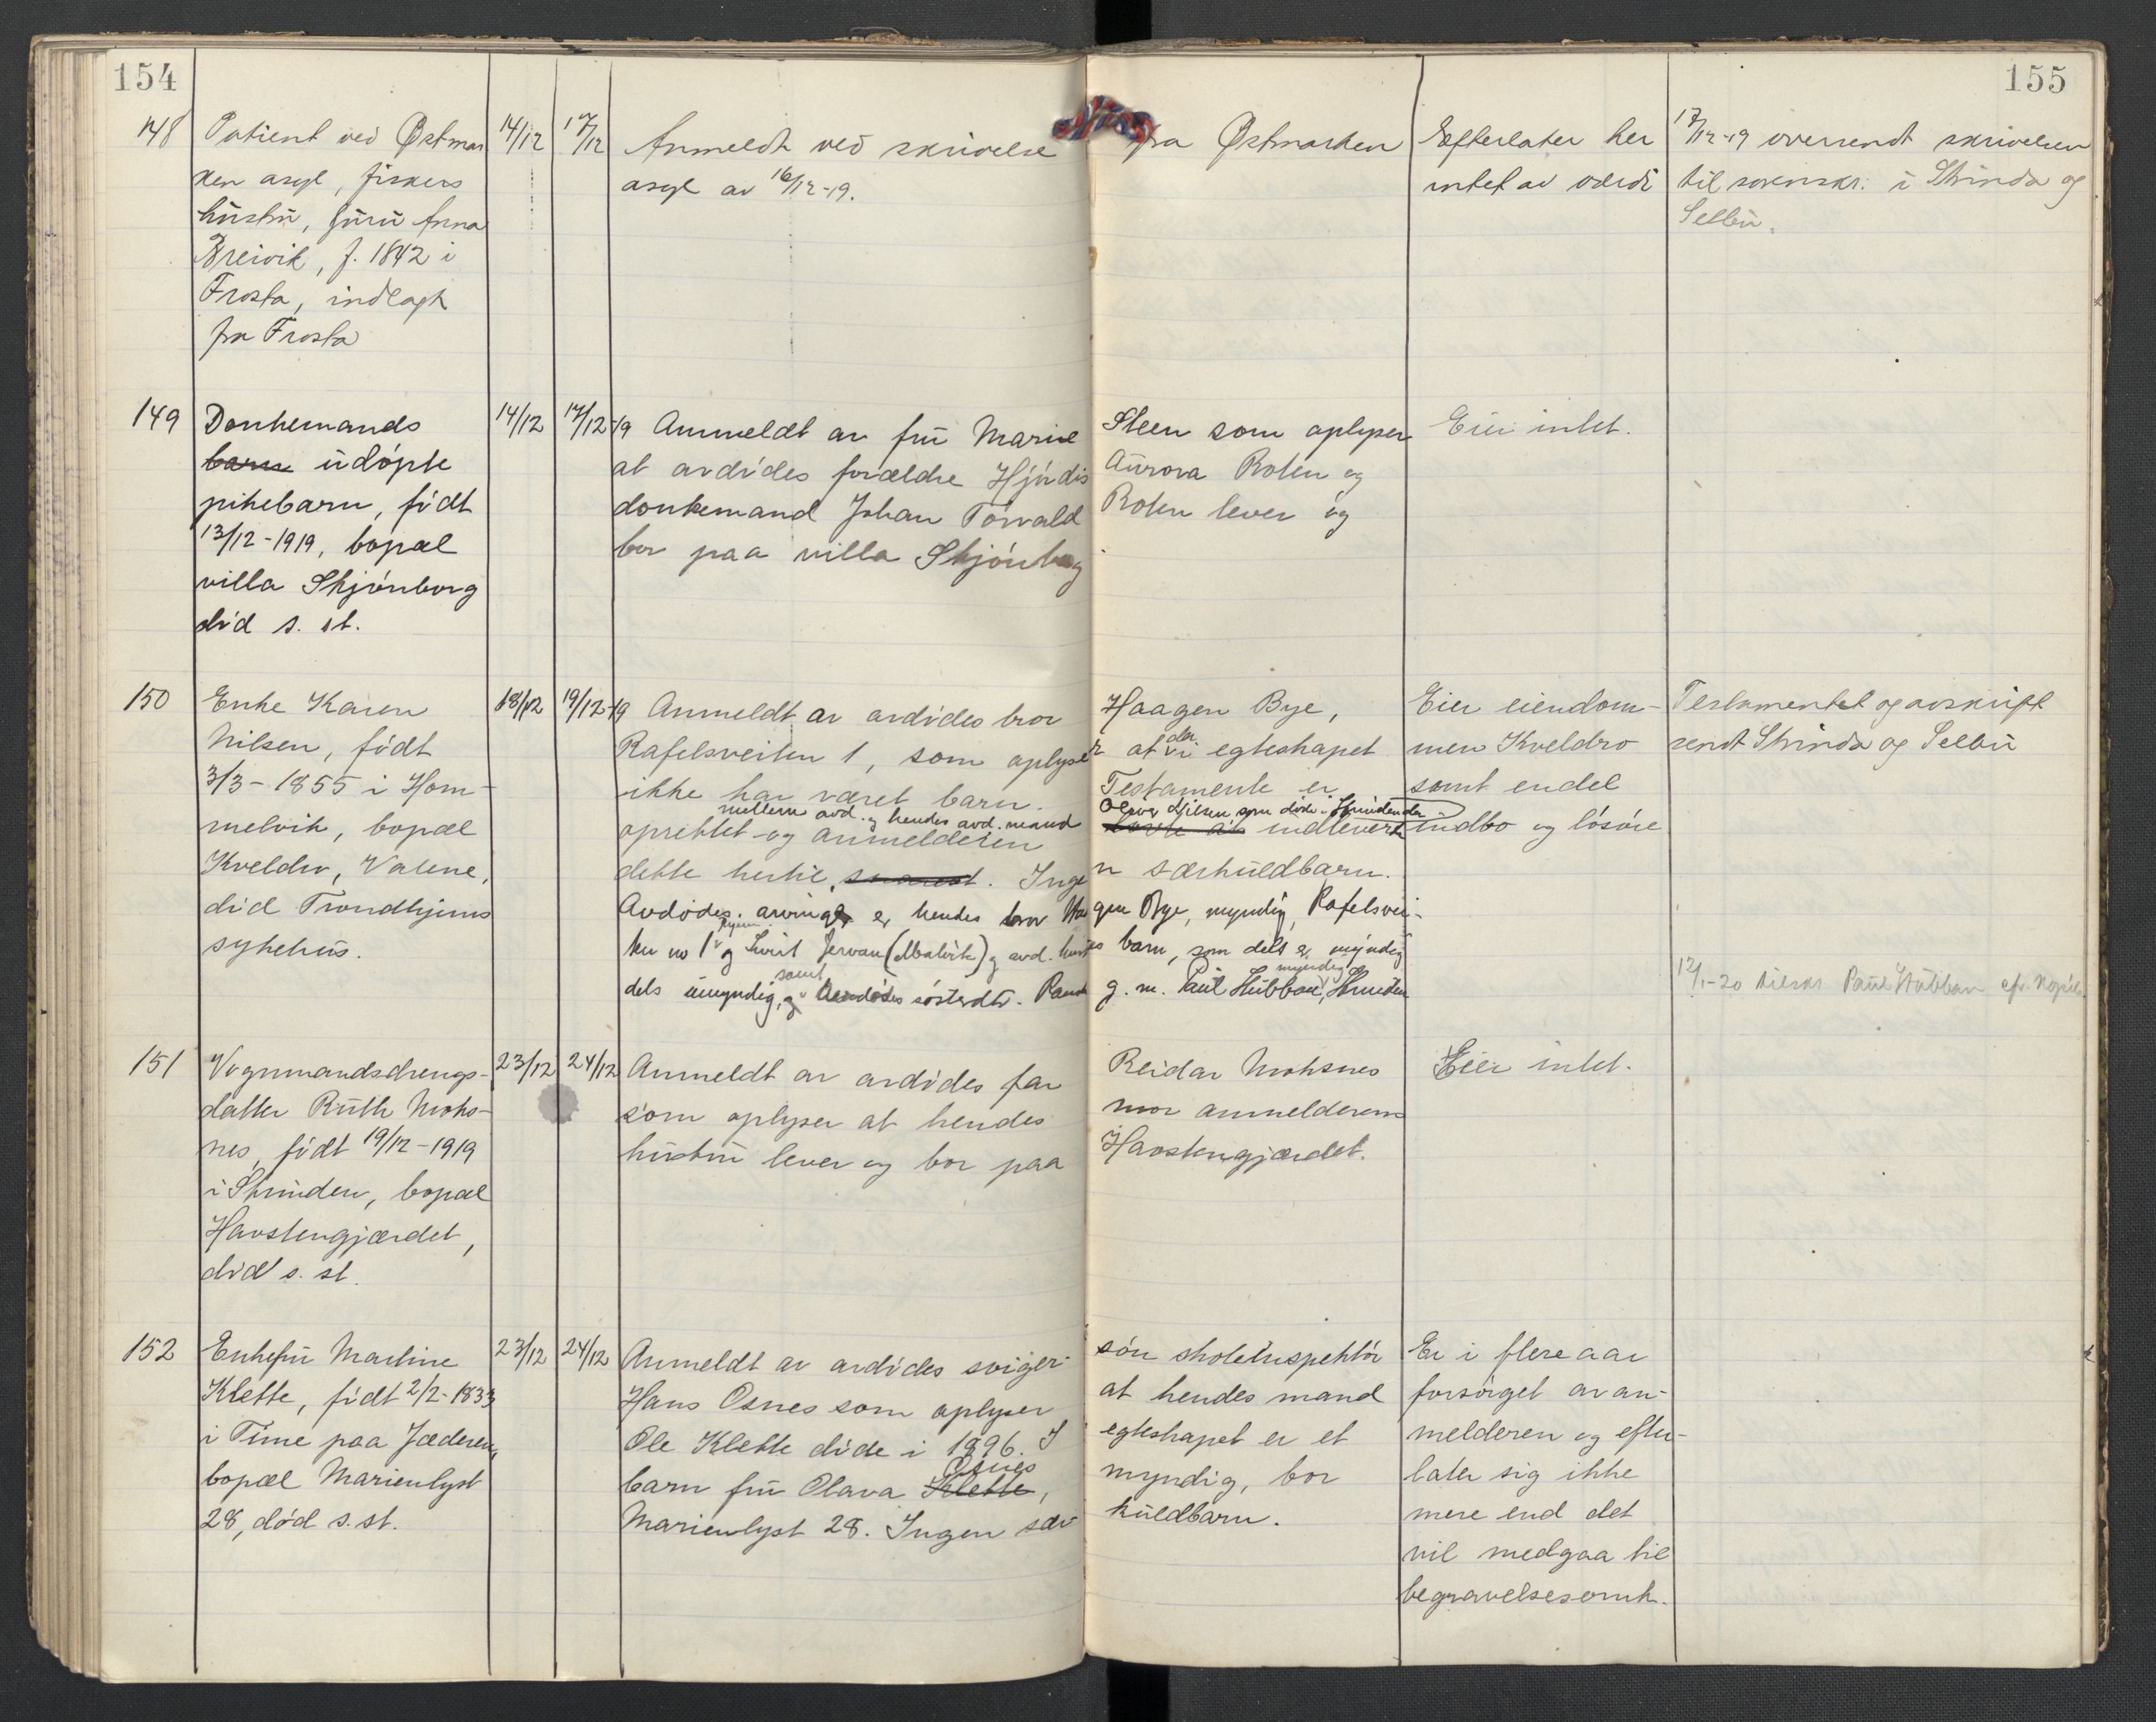 154
155
148 Patient ved Østmar 14/12 17/12 Anmeldt ved skrivelse fra Østmarken Efterlater her 17/12-19 oversendt skrivelsen
ken asyl, fiskers asyl av 16/12-19. intet av værdi til sorenskr. i Strinda og
hustru, Guru Anna Selbu.
Breivik, f. 1842 i
Frosta, indlagt
fra Frosta
149 Donkemands 14/12 17/12-19 Anmeldt av fru Marie Steen som oplyser Eier intet.
barn udøpte at avdødes forældre Hjørdis Aurora Roten og
pikebarn, født donkemand Johan Torvald Roten lever og
13/12-1919, bopæl bor paa villa Skjønborg
villa Skjønborg
død s. st.
150 Enke Karen 18/12 19/12-19 Anmeldt av avdødes bror Haagen Bye, Eier eiendom- Testamentet og avskrift
Nilsen, født Rafelsveiten 1, som oplyser at der i egteskapet men Kveldro sendt Strinda og Selbu
3/3-1855 i Hom- ikke har været barn. Testamente er samt endel
mellem avd. og hendes avd. mand Oliver Nilsen som døde i Strinden
melvik, bopæl oprettet og anmelderen indlevert indbo og løsøre
Kveldro, Valene, dette hertil. Ingen særkuldbarn.
død Trondhjems Avdødes arvinger er hendes bror Haagen Bye, myndig, Rafelsvei-
sykehus. ten no 1 og Jervan (Malvik) og avd. barn, som dels er myndig
samt myndig
dels umyndig, og Avdødes søsterdtr. g. m. Paul Stubban, Strinden
12/1-20 tilskr. Paul Stubban
151 Vognmandsdrengs- 23/12 24/12 Anmeldt av avdødes far Reidar Mohsnes Eier intet.
datter Ruth Mohs- som oplyser at hendes mor anmelderens
nes, født 19/12-1919 hustru lever og bor paa Havstengjærdet.
i Strinden, bopæl
Havstengjærdet,
død s. st.
152 Enkefru Martine 23/12 24/12 Anmeldt av avdødes sviger- søn skoleinspektør Er i flere aar
Klette, født 2/2-1833 Hans Osnes som oplyser at hendes mand forsørget av an-
i Time paa Jæderen, Ole Klette døde i 1896. I egteskapet er et melderen og efter-
Osnes
bopæl Marienlyst barn fru Olava Klette, myndig, bor later sig ikke
28, død s. st. Marienlyst 28. Ingen sær kuldbarn. mere end det
vil medgaa til
begravelsesomk.